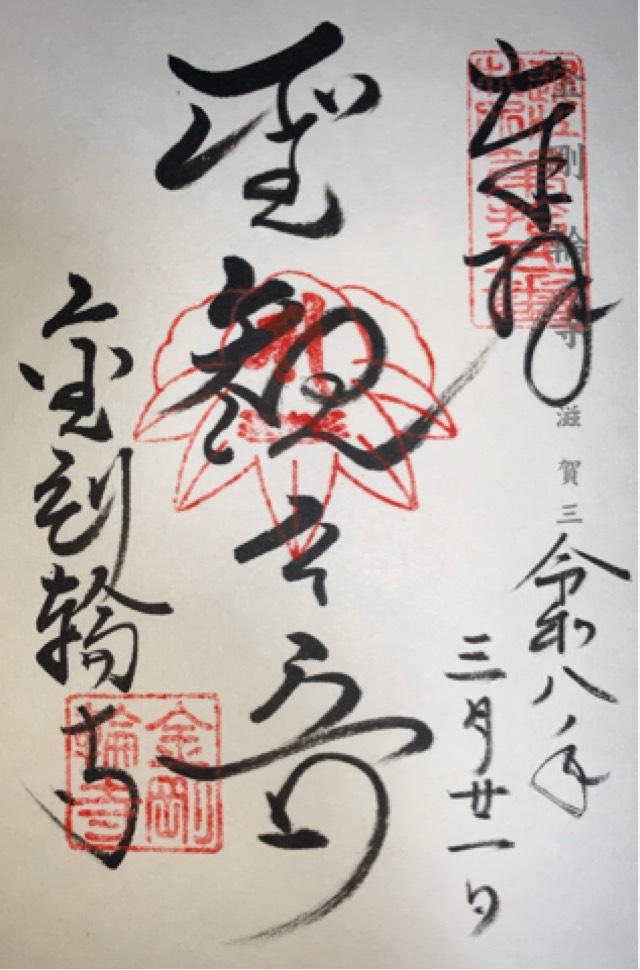 奉拝
金剛輪寺 滋賀三
令和八年
三月廿一日
聖観
金剛輪寺
金剛
輪寺